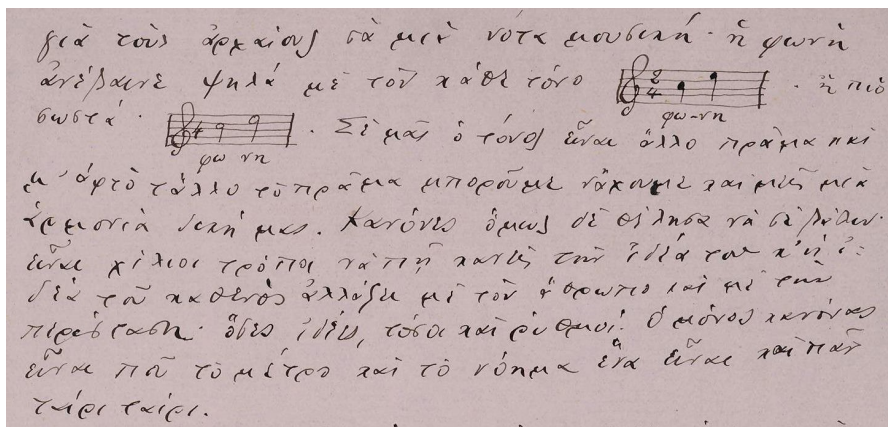 γιὰ τοὺς ἀρχαίους σὰ μιὰ νότα μουσική· ἡ φωνὴ
ἀνέβαινε ψηλὰ μὲ τὸν κάθε τόνο 2 4 φω-νη · ἢ πιὸ
σωστά· 4 φω νη . Σὲ μᾶς ὁ τόνος εἶναι ἄλλο πρᾶμα καὶ
μ' ἀφτὸ τἄλλο τὸ πρᾶμα μποροῦμε νἄχουμε καὶ μεῖς μιὰ
ἁρμονία δική μας. Κανόνες ὅμως δὲ θέλησα νὰ σὲ βάλω·
εἶναι χίλιοι τρόποι νὰ πῇ κανεὶς τὴν ἰδέα του κ' ἡ ἰ-
δέα τοῦ καθενὸς ἀλλάζει μὲ τὸν ἄθρωπο καὶ μὲ τὴν
περίσταση· ὅσες ἰδέες, τόσοι καὶ ῥυθμοί. Ὁ μόνος κανόνας
εἶναι ποῦ τὸ μέτρο καὶ τὸ νόημα ἕνα εἶναι καὶ πᾶν
ταίρι ταίρι.